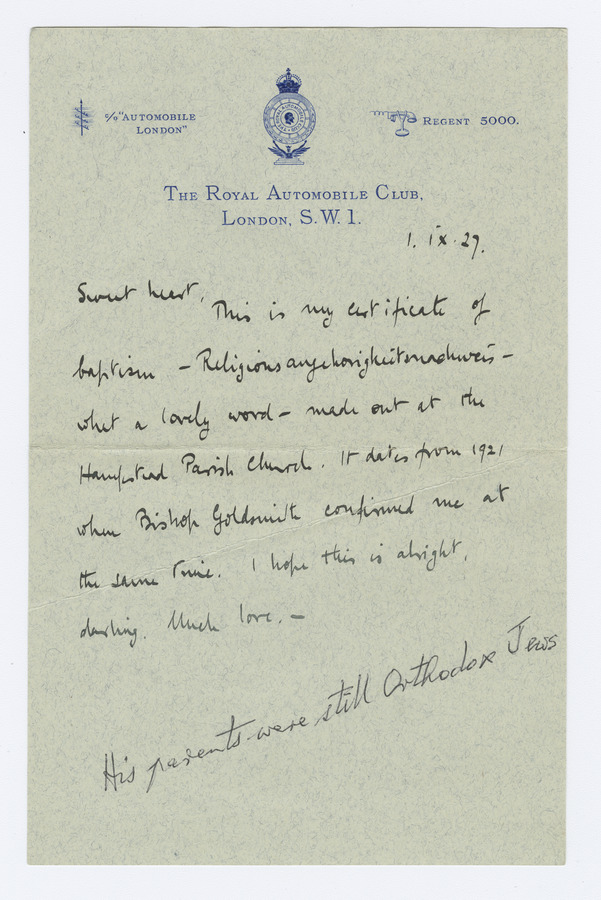 ℅ "AUTOMOBILE
LONDON"
REGENT 5000.
THE ROYAL AUTOMOBILE CLUB,
LONDON, S.W. 1.
1. IX. 29.
Sweet heart,
This is my certificate of
baptism – Religionsangehorigkeitsnachweis –
what a lovely word – made out at the
Hampstead Parish Church. It dates from 1921
when Bishop Goldsmith confirmed me at
the same time. I hope this is alright,
darling. Much love. –
His parents were still Orthodox Jews